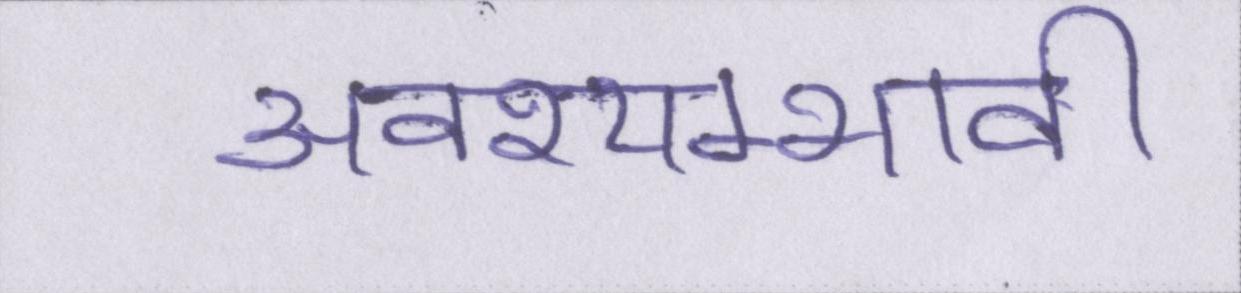 अवश्यम्भावी